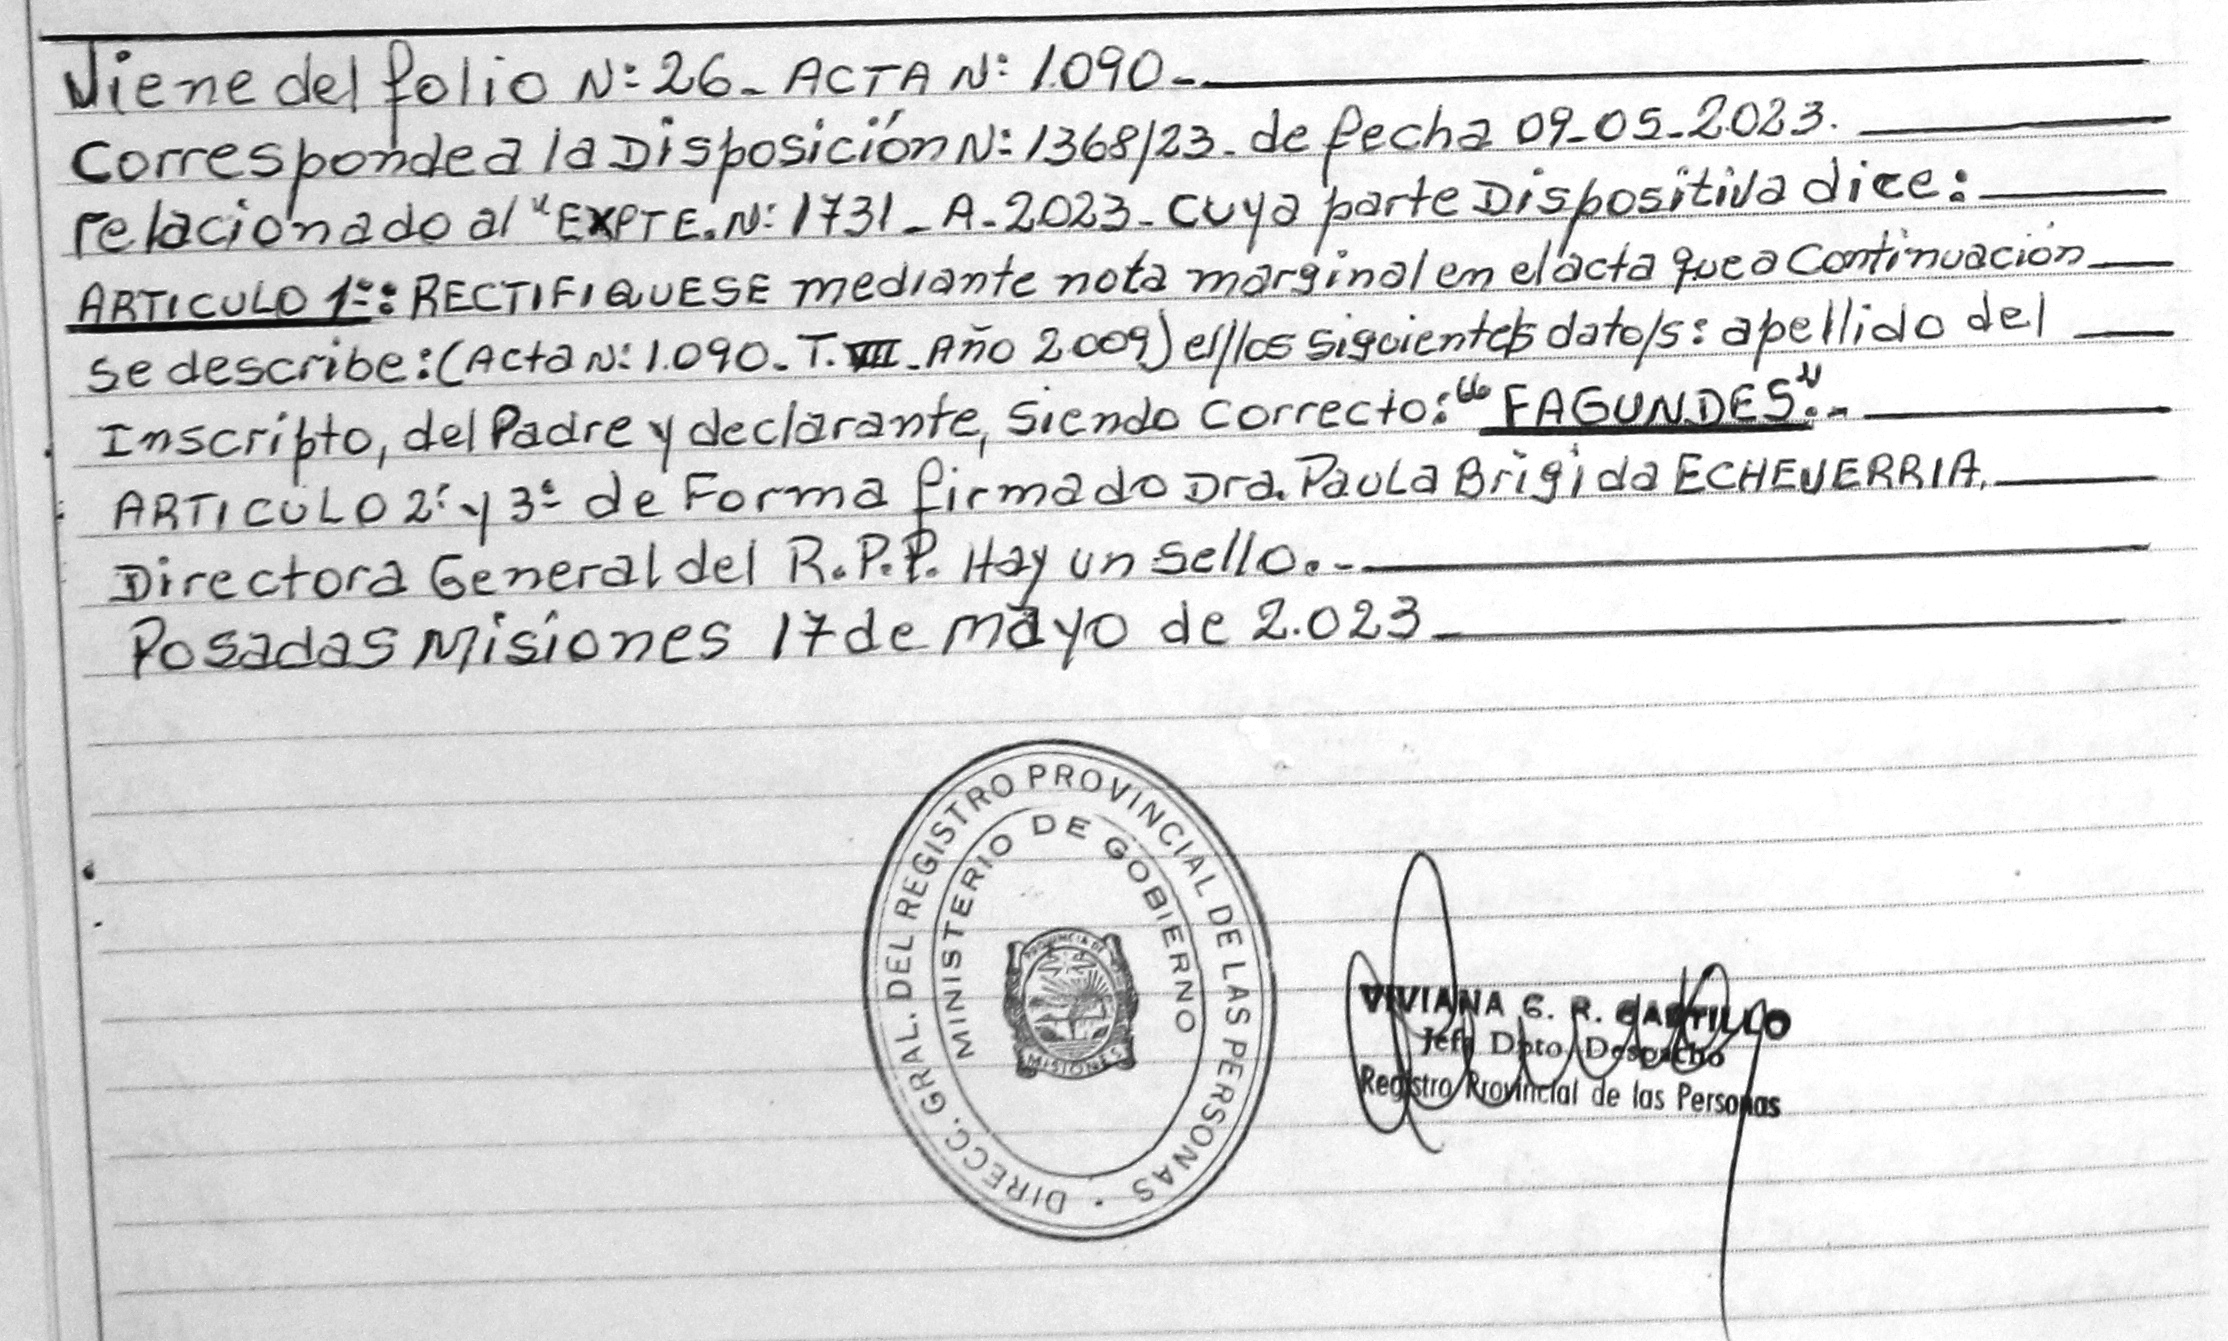 Viene del folio N: 26_ ACTA N: 1.090_
Corresponde a la Disposición N: 1368/23_ de fecha 09_05_2023.
relacionado al "EXPTE. N: 1731_ A_ 2023_ cuya parte Dispositiva dice:
ARTICULO 1º: RECTIFIQUESE mediante nota marginal en el acta que a Continuación
se describe: (Acta N: 1.090_ T. VII_ Año 2009) el/los siguiente/s dato/s: apellido del
Inscripto, del Padre y declarante, siendo correcto: "FAGUNDES"._
ARTICULO 2º y 3º de Forma firmado Dra. Paula Brigida ECHEVERRIA.
Directora General del R.P.P. Hay un sello._
Posadas Misiones 17 de mayo de 2.023_
DIRECC. GRAL. DEL REGISTRO PROVINCIAL DE LAS PERSONAS
MINISTERIO DE GOBIERNO
PROVINCIA DE
MISIONES
VIVIANA G. R. CASTILLO
Jefe Dpto Despacho
Registro Provincial de las Personas